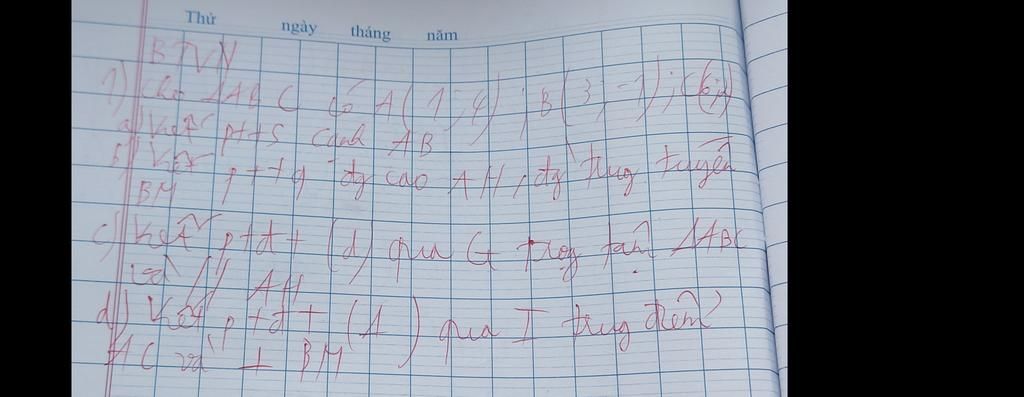 Thứ ngày tháng năm
BTVN
1) Cho ΔABC có A(1;4); B(3;-1);
a) Viết ptts cạnh AB
b) Viết pttq đg cao AH, đg trug tuyến
BM
c) Viết ptđt (d) qua G trọg tâm ΔABC
và // AH
d) Viết ptđt (Δ) qua I trug điểm
AC và ⊥ BM